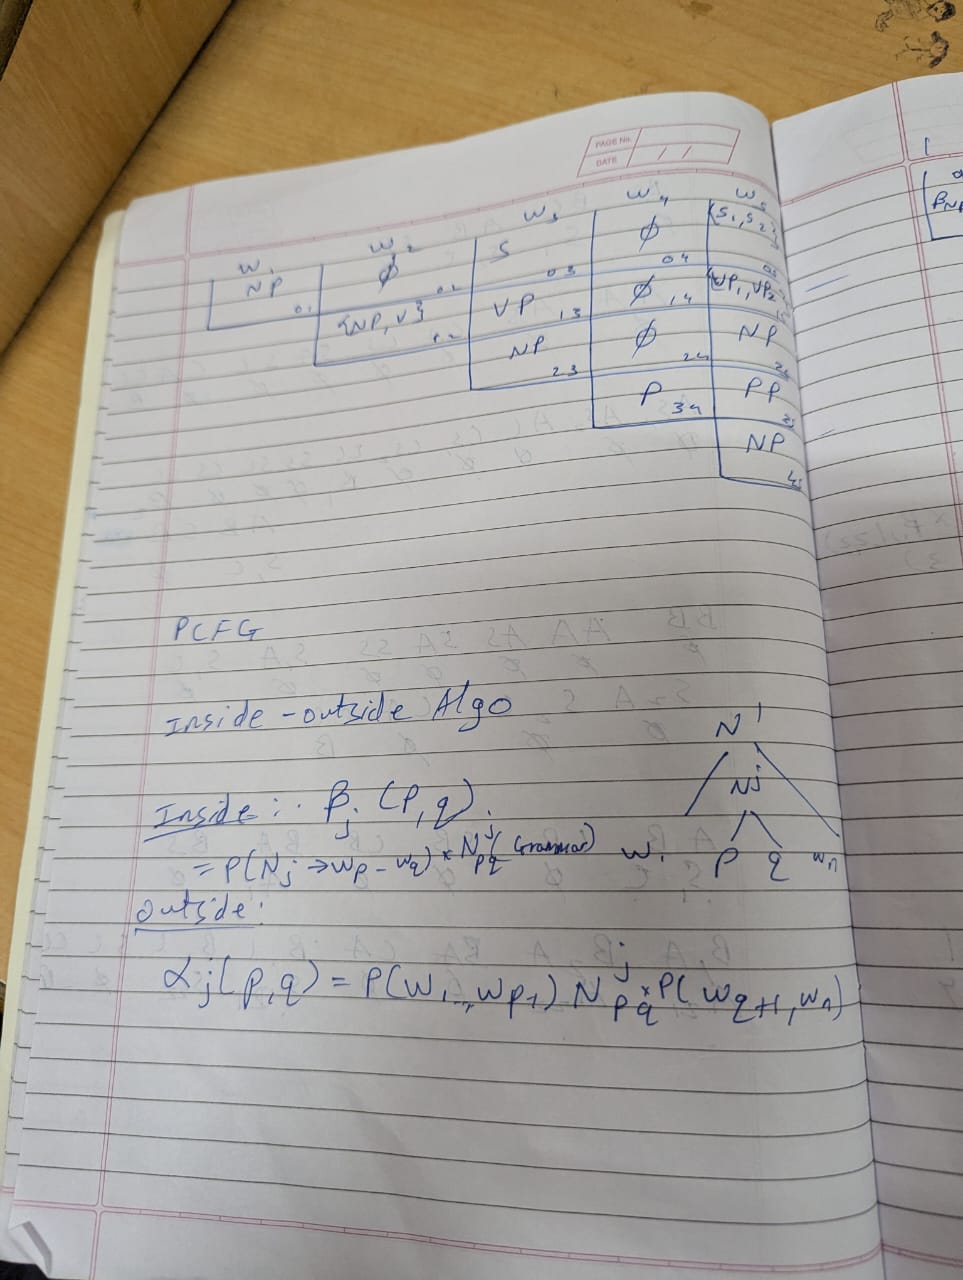 PAGE No.
DATE / /
w1 w2 w3 w4 w5
NP 01 ϕ 02 S 03 ϕ 04 {S1, S2} 05
{NP, V} 12 VP 13 ϕ 14 {VP1, VP2} 15
NP 23 ϕ 24 NP 25
P 34 PP 35
NP 45
PCFG
Inside-outside Algo
N1
Nj
Inside: βj (P, q)
= P(Nj → wp - wq) * Njpq (Grammar)
w1 P q wn
outside:
αj(p,q) = P(w1..., wp-1) Njpq * P(wq+1, wn)